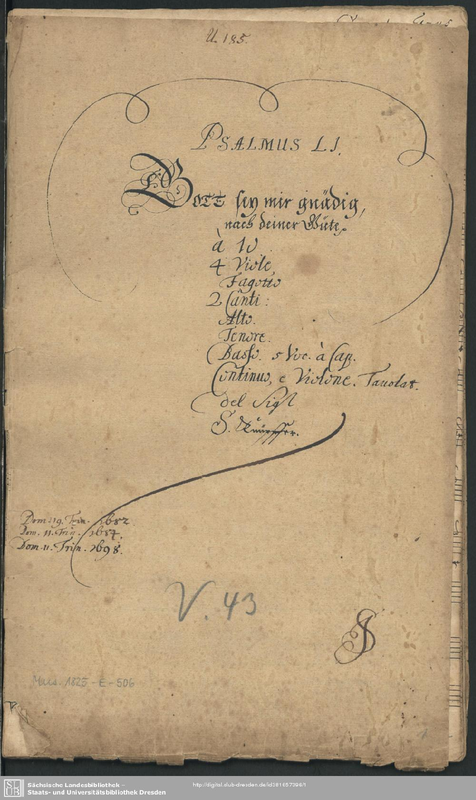 U. 185.
PSALMUS LI.
GOTT sey mir gnädig,
nach deiner Güte,
à 10
4 Viole,
Fagotto
2 Canti:
Alto.
Tenore.
Basso. 5 Voc. à Cap.
Continuo, e Violone.
del Sigl
S. Knüpffer.
Dom. 19. Trin. 1682
Dom. 11. Trin. 1687.
Dom. 11. Trin. 1698.
V. 43
Mus. 1825-E-506
Sächsische Landesbibliothek -
Staats- und Universitätsbibliothek Dresden